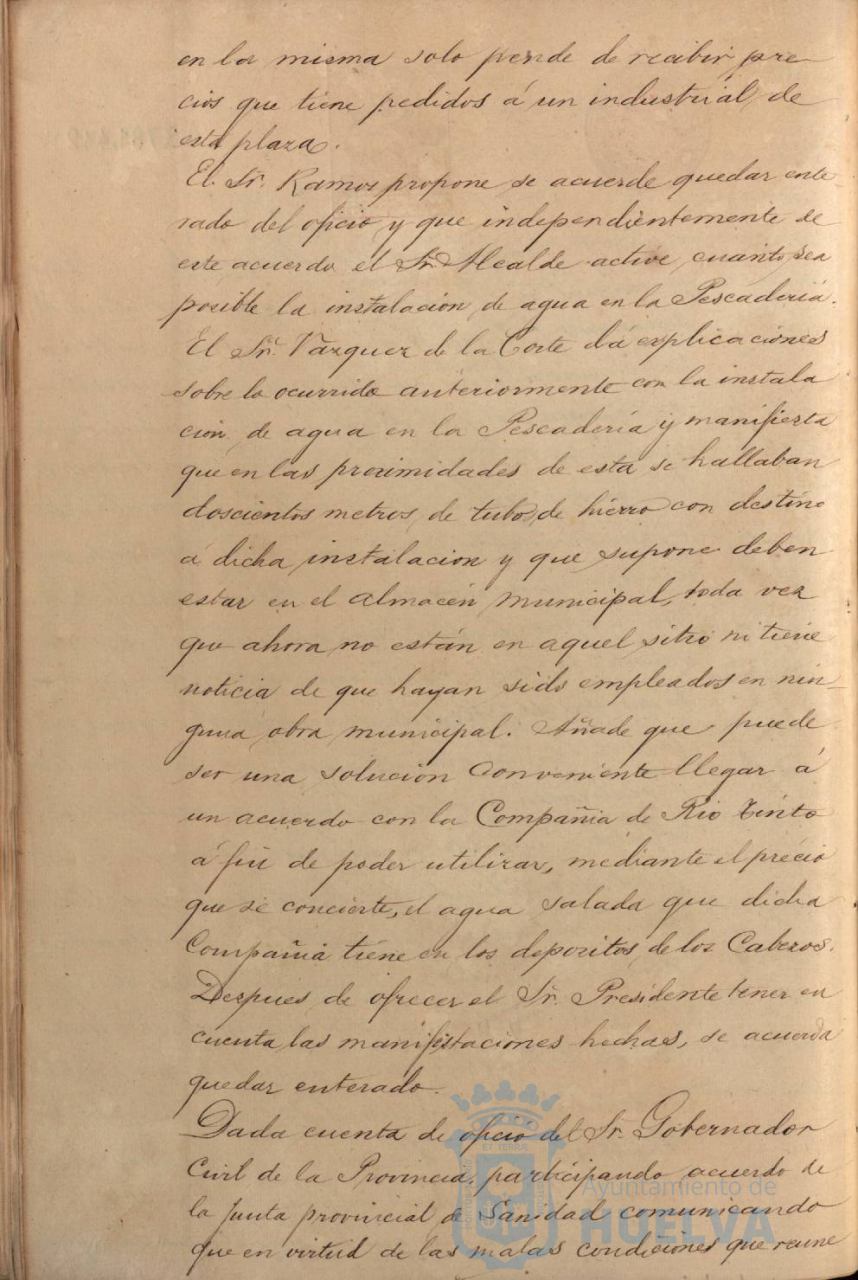 en la misma solo pende de recibir pre
cios que tiene pedidos á un industrial de
esta plaza.
El Sr. Ramos propone se acuerde quedar ente-
rado del oficio y que independientemente de
este acuerdo el Sr. Alcalde active cuanto sea
posible la instalacion de agua en la Pescadería.
El Sr. Vázquez de la Corte dá explicaciones
sobre lo ocurrido anteriormente con la instala
cion de agua en la Pescadería y manifiesta
que en las proximidades de esta se hallaban
doscientos metros de tubo de hierro con destino
á dicha instalacion y que supone deben
estar en el almacén municipal, toda vez
que ahora no están en aquel sitio ni tiene
noticia de que hayan sido empleados en nin-
guna obra municipal. Añade que puede
ser una solución conveniente llegar á
un acuerdo con la Compañia de Rio Tinto
á fin de poder utilizar, mediante el precio
que se concierte, el agua salada que dicha
Compañia tiene en los depositos de los Cabezos.
Despues de ofrecer el Sr. Presidente tener en
cuenta las manifestaciones hechas, se acuerda
quedar enterado.
Dada cuenta de oficio del Sr. Gobernador
Civil de la Provincia, participando acuerdo de
la Junta provincial de Sanidad comunicando
que en virtud de las malas condiciones que reune
Ayuntamiento de
HUELVA